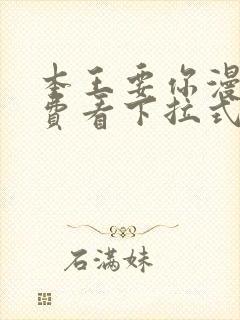 本王要你漫
费看下拉式
石满妹